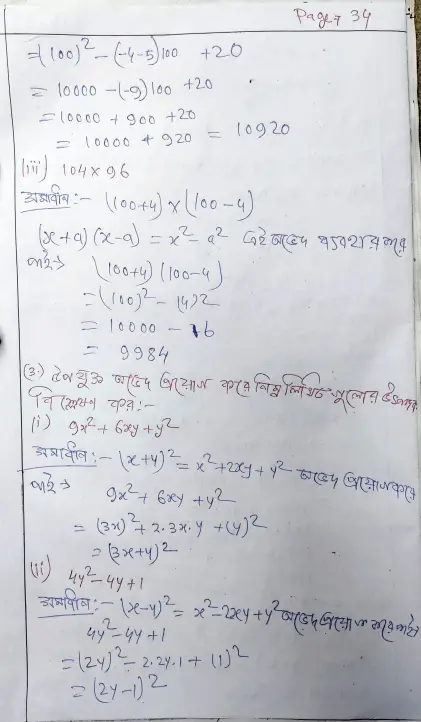 Page 34
=(100)² - (-4-5)100 +20
= 10000 - (-9)100 +20
= 10000 + 900 +20
= 10000 + 920 = 10920
(iii) 104×96
(100+4)×(100-4)
(x+a)(x-a) = x²-a² এই অভেদ ব্যবহার করে
পাই→ (100+4)(100-4)
=(100)² - (4)2
= 10000 - 16
= 9984
(3.) অভেদ প্রয়োগ করে নিম্ন লিখিত
বিশ্লেষণ কর:-
(i) 9x²+6xy+y²
(x+y)² = x²+2xy+y² অভেদ প্রয়োগ করে
পাই→ 9x²+6xy+y²
= (3x)²+2.3x.y+(y)²
= (3x+y)²
(ii) 4y²-4y+1
(x-y)² = x²-2xy+y² অভেদ প্রয়োগ করে পাই
4y²-4y+1
=(2y)²-2.2y.1+(1)²
= (2y-1)²